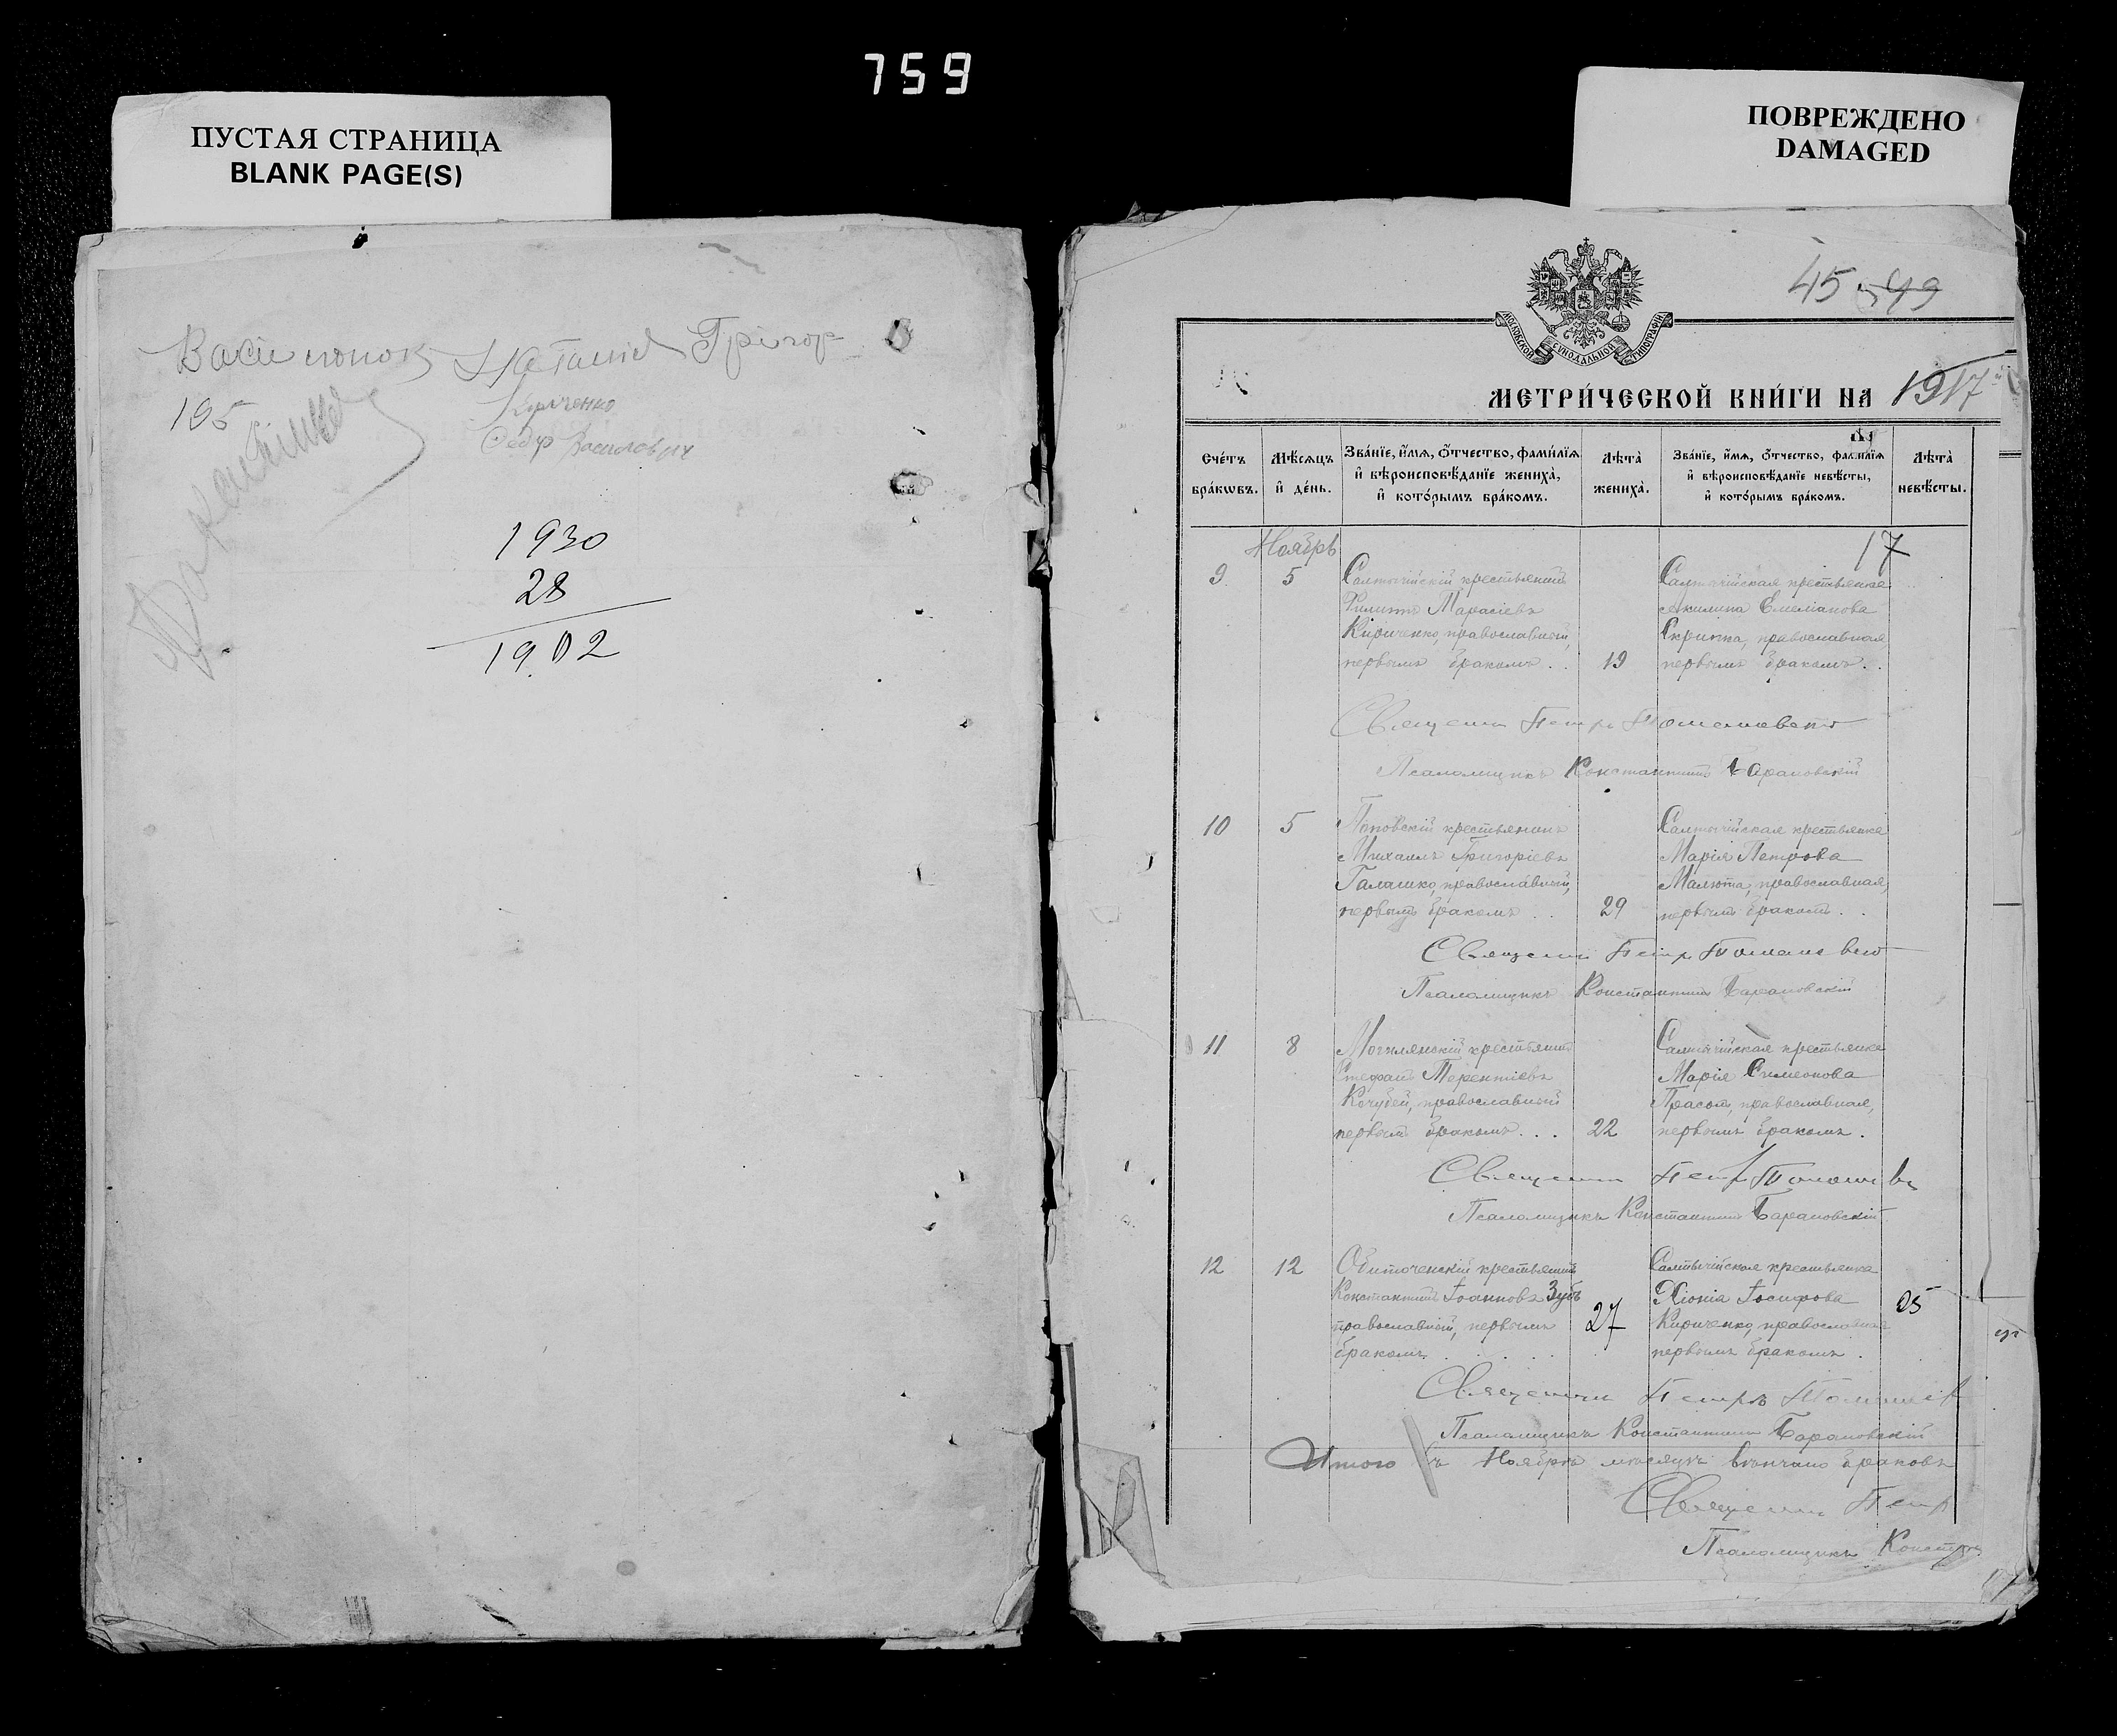 759
ПУСТАЯ СТРАНИЦА
BLANK PAGE(S)
Григор
195
Кириченко
1930
28
1902
ПОВРЕЖДЕНО
DAMAGED
45 549
МОСКОВСКОЙ СѴНОДАЛЬНОЙ ТИПОГРАФІИ
МЕТРИ́ЧЕСКОЙ КНИ́ГИ НА 1917
Сче́тъ бра́кѡвъ.
Мѣ́сѧцъ и҆ де́нь.
Зва́нїе, и҆́мѧ, ѻ҆́тчество, фами́лїѧ
и҆ вѣроисповѣ́данїе жениха̀,
и҆ кото́рымъ бра́комъ.
Лѣ́та̀ жениха̀.
Зва́нїе, и҆́мѧ, ѻ҆́тчество, фами́лїѧ
и҆ вѣроисповѣ́данїе невѣ́сты,
и҆ кото́рымъ бра́комъ.
Лѣ́та̀ невѣ́сты.
Ноябрь
17
9 5 Салтычійскій крестьянинъ
Филиппъ
Кириченко, православный,
первымъ бракомъ . . 19
Салтычійская крестьянка
Акилина Емеліанова
Скрипка, православная
первымъ бракомъ . .
Священ Петр
Псаломщикъ Константинъ Барановскій
10 5 Поповскій крестьянинъ
Михаилъ Григоріевъ
Галашко, православный,
первымъ бракомъ . . 29
Салтычійская крестьянка
Марія Петрова
Малюта, православная,
первымъ бракомъ . .
Священ Петр
Псаломщикъ Константинъ Барановскій
11 8 крестьянинъ
Стефанъ Терентіевъ
Кочубей, православный
первымъ бракомъ . . . 22
Салтычійская крестьянка
Марія Симеонова
православная,
первымъ бракомъ .
Священ Петр
Псаломщикъ Константинъ Барановскій
12 12 Обиточенскій крестьянинъ
Константинъ Іоанновъ Зубъ
православный, первымъ
бракомъ . . . . . 27
Салтычійская крестьянка
Хіонія Іосифова
Кириченко, православная
первымъ бракомъ . 25
Священ Петръ
Псаломщикъ Константинъ Барановскій
Итого въ Ноябрѣ мѣсяцѣ вѣнчано браковъ
Священ Петр
Псаломщикъ Конст